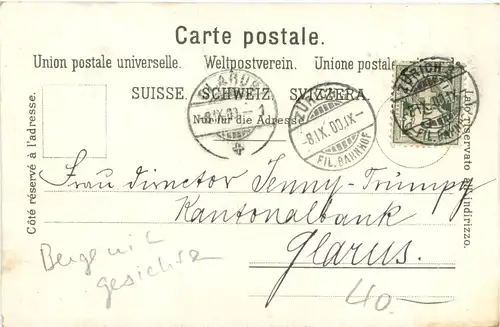 Carte postale.
Union postale universelle. Weltpostverein. Unione postale
SUISSE. SCHWEIZ. SVIZZERA.
Nur für die Adresse
Côté réservé à l'adresse.
Lato riservato all'indirizzo.
GLARUS
-8.IX.00.- 1
-8.IX.00.IX-
FIL. BAHNHOF
ZÜRICH
FIL. BAHNHOF
Frau director Jenny-Trümpy
Kantonalbank
Glarus.
40.—